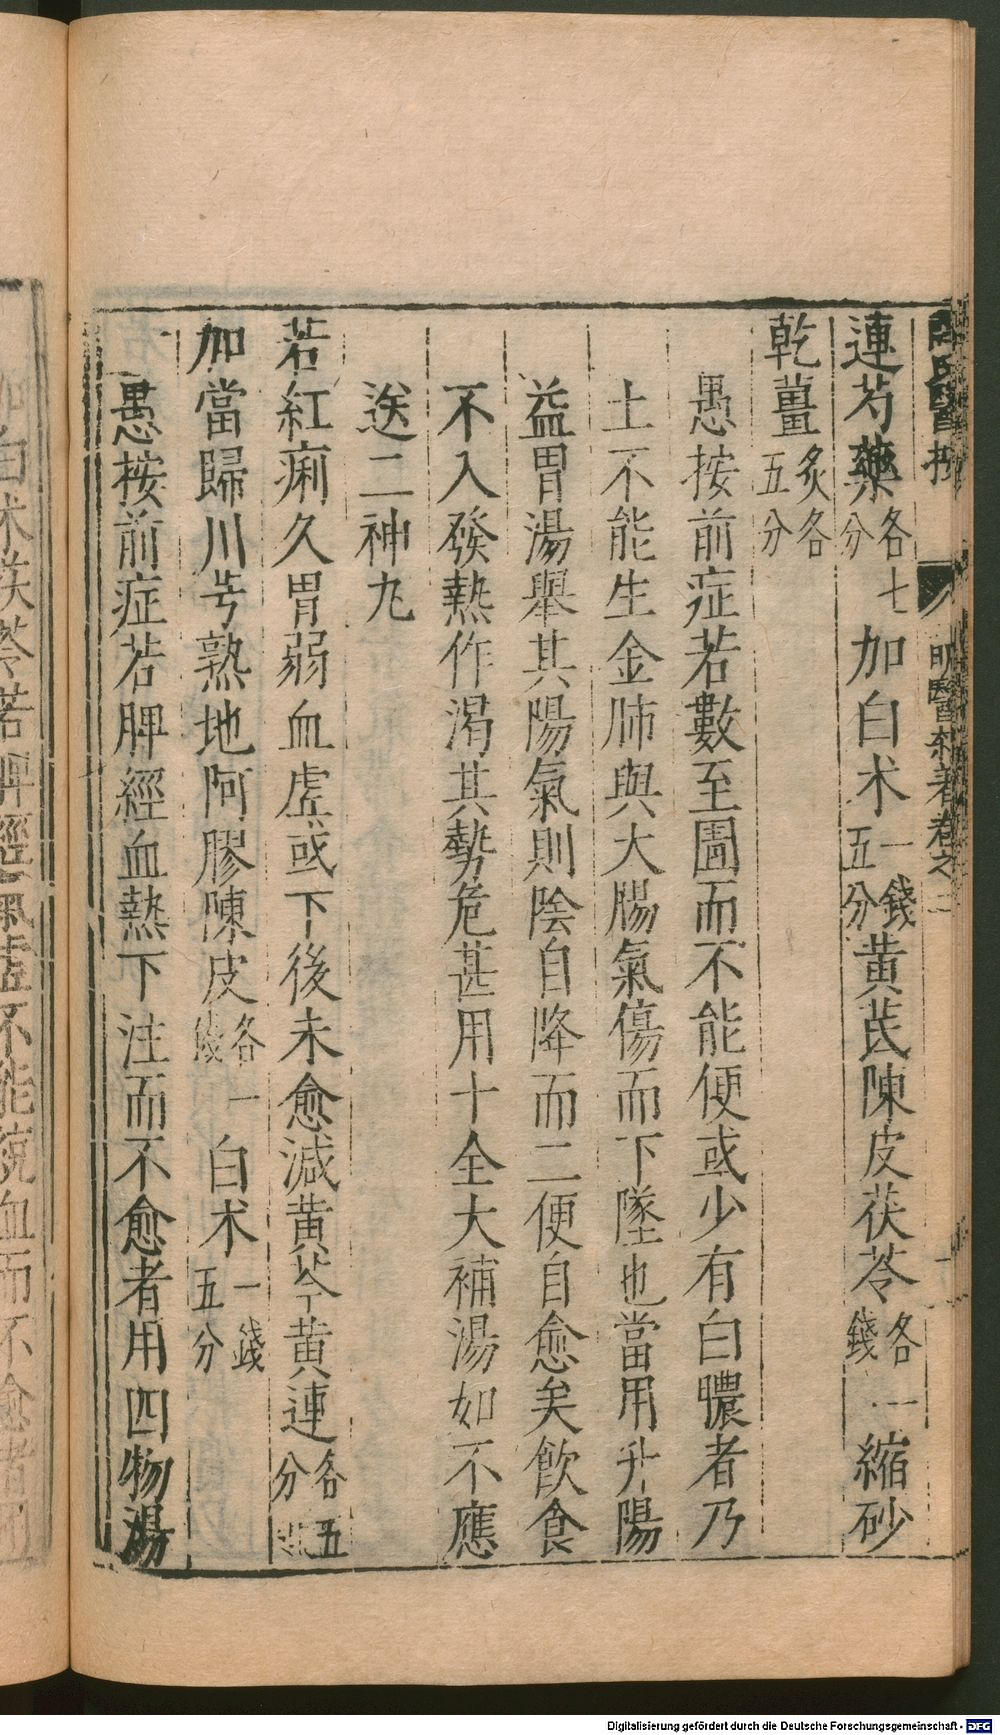 連芍藥各七分加白术一錢五分黄芪陳皮茯苓各一錢縮砂
乾薑炙各五分
愚按前症若數至圊而不能便或少有白膿者乃
土不能生金肺與大腸氣傷而下墜也當用升陽
益胃湯舉其陽氣則陰自降而二便自愈矣飲食
不入發熱作渴其勢危甚用十全大補湯如不應
送二神丸
若紅痢久胃弱血虛或下後未愈減黄芩黄連各五分
加當歸川芎熟地阿膠陳皮各一錢白术一錢五分
愚按前症若脾經血熱下注而不愈者用四物湯
醫按
明醫雜著卷之二
白术茯苓若脾經氣虛不能統血而不愈者用
Digitalisierung gefördert durch die Deutsche Forschungsgemeinschaft - DFG